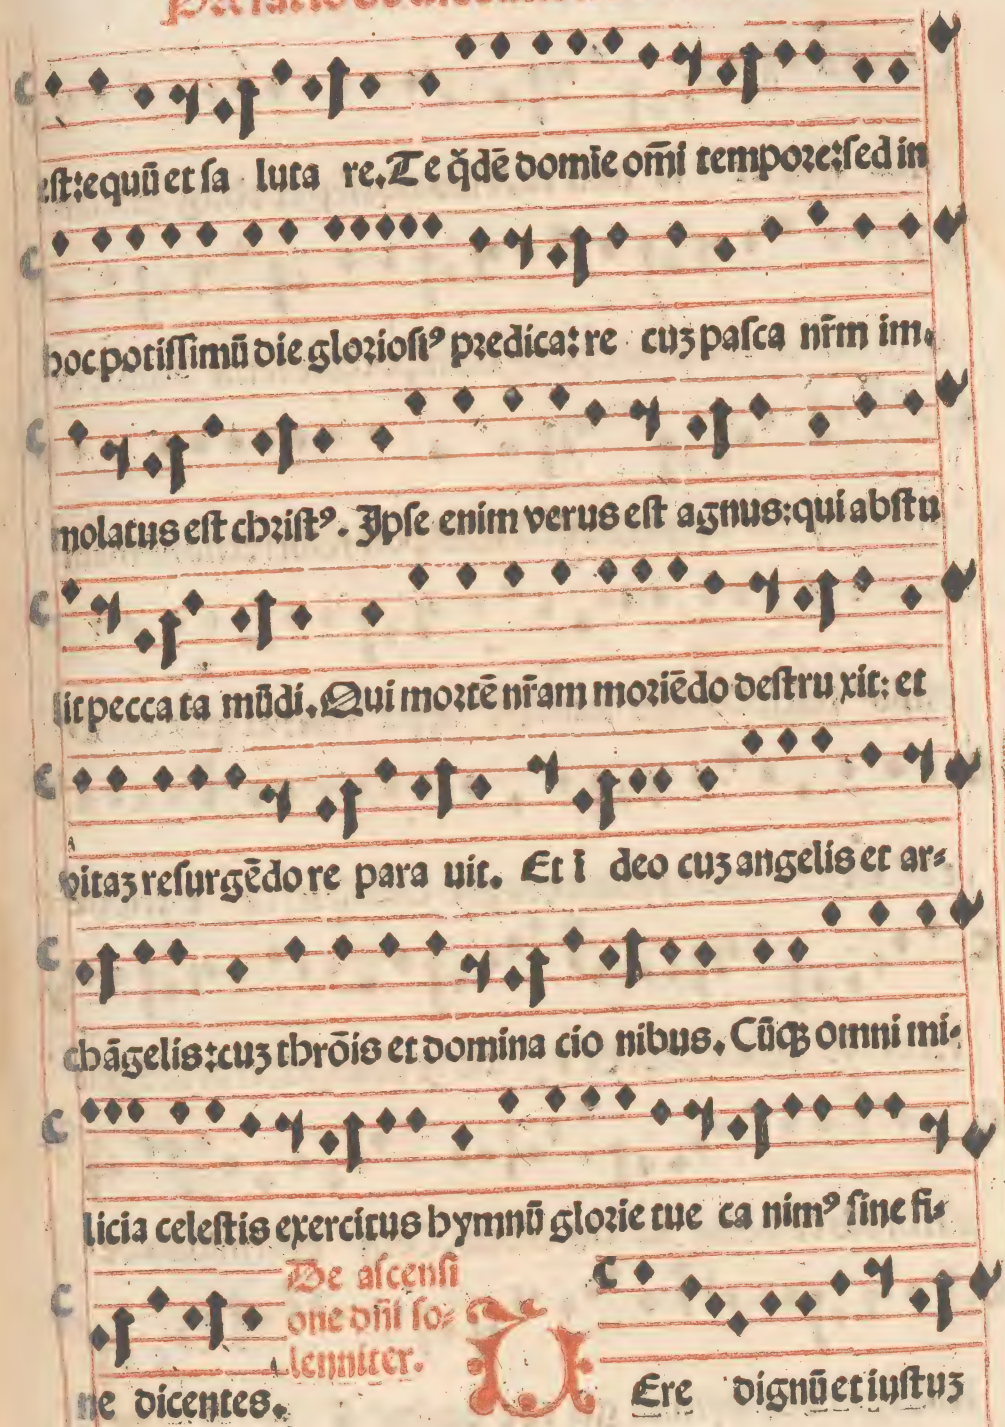 est: equū et sa luta re. Te q̄dē domīe om̄i tempore: sed in
hoc potissimū die gloriosiꝰ predica: re cuȝ pasca nr̄m im.
molatus est christꝰ. Ipse enim verus est agnus: qui abstu
lit pecca ta mūdi. Qui mortē nr̄am moriēdo destru xit: et
vitaȝ resurgēdo re para uit. Et ī deo cuȝ angelis et ar⸗
chāgelis: cuȝ thrōis et domina cio nibus. Cūqȝ omni mi⸗
licia celestis exercitus hymnū glorie tue ca nimꝰ sine fi⸗
ne dicentes.
De ascensi
one dn̄i so⸗
lenniter.
VEre dignū et iustuȝ